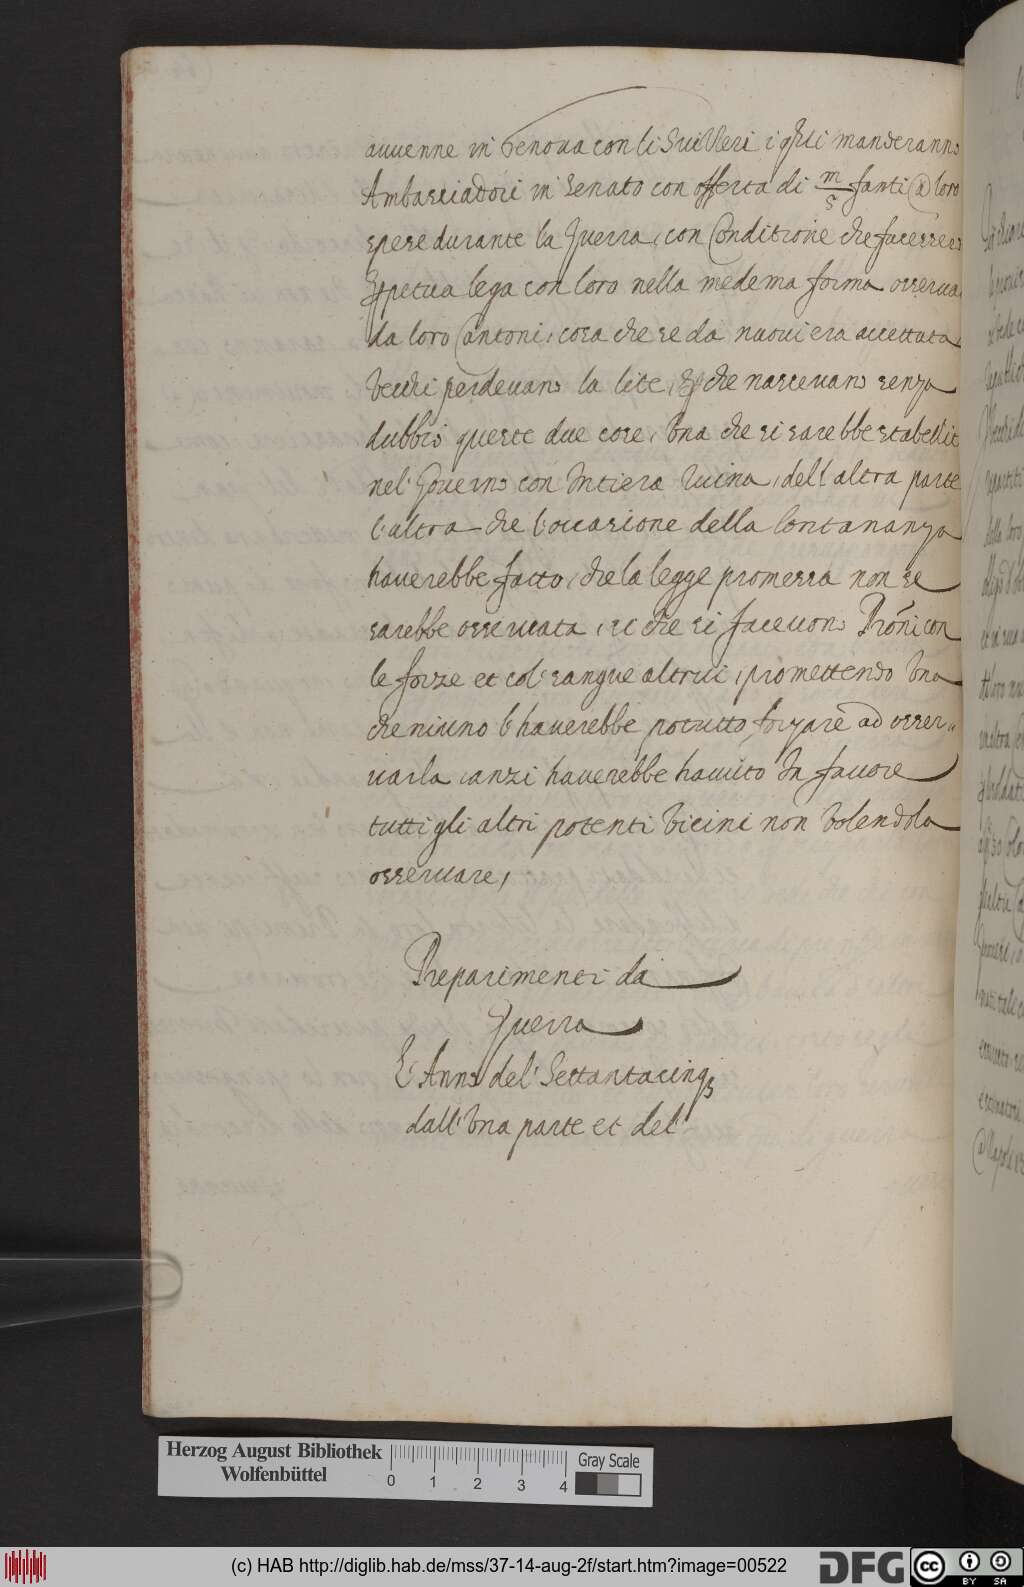 auuenne in Genoua con li Suizzeri i q̃li manderanno
Ambasciadori in Senato con offerta di m/5 fanti à loro
spese durante la Guerra, con Conditione che facessero
ꝑpetua lega con loro nella medema forma osserua
da loro Cantoni, cosa che se da nuoui era accettata
Vecchi perdeuano la lite, che nasceuano senza
dubbio queste due cose, Vna che si sarebbe stabellit
nel' Gouerno con Intiera Ruina, dell'altra parte
l'altra che l'occasione della lontananza
hauerebbe fatto, che la legge promessa non se
sarebbe osseruata, et che si faceuono Pro͂ni con
le forze et col' sangue altrui, promettendo Vna
che niuno l'hauerebbe potutto forzare ad osser-
uarla, anzi hauerebbe hauuto In fauore
tutti gli altri potenti Vicini non Volendola
osseruare,
Preparimenti da
Guerra
L'Anno del' Settantacinq3
dall' Vna parte et del'
Herzog August Bibliothek
Wolfenbüttel
0 1 2 3 4
Gray Scale
(c) HAB http://diglib.hab.de/mss/37-14-aug-2f/start.htm?image=00522
DFG
cc BY SA